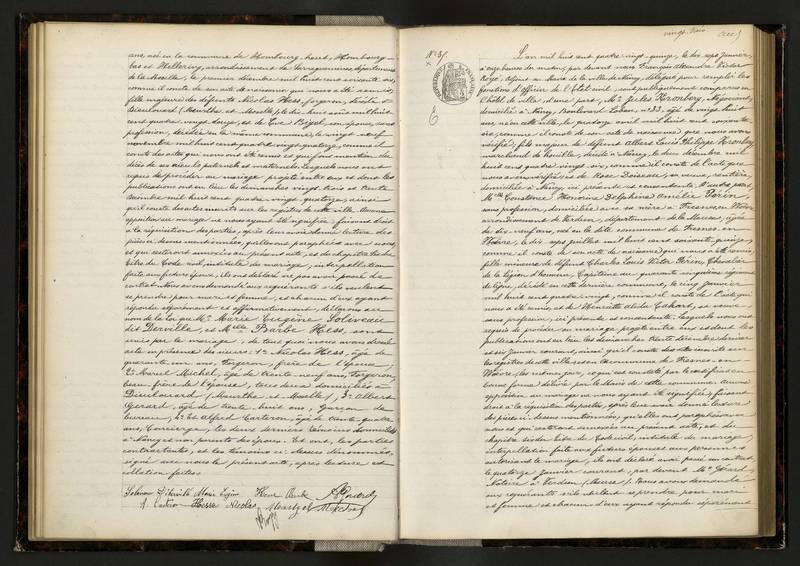 ans, née en la commune de Hombourg-haut, Hombourg-
bas et Hellering, arrondissement de Sarreguemines, département
de la Moselle, le premier décembre mil huit cent soixante six,
comme il conste de son acte de naissance qui nous a été remis,
fille majeure des défunts Nicolas Hess, forgeron, décédé à
Dieulouard (Meurthe et Moselle) le dix huit mil huit
cent quatre vingt et de Eve son épouse, sans
profession, décédée en la même commune le vingt neuf
novembre mil huit cent quatre vingt quatorze, comme il
conste des actes qui nous ont été remis et qui font mention du
décès de ses aïeuls paternels et maternels. Lesquels nous ont
requis de procéder au mariage projeté entre eux et dont les
publications ont eu lieu les dimanches vingt trois et trente
décembre mil huit cent quatre vingt quatorze, ainsi
qu'il conste des actes inscrits sur les registres de cette ville. Aucune
opposition au mariage ne nous ayant été signifiée, faisant droit
à la réquisition des parties, après leur avoir donné lecture des
pièces ci-dessus mentionnées, qu'elles ont paraphées avec nous,
et qui resteront annexées au présent acte, et du chapitre six du
titre du Code civil, intitulé du mariage, interpellation
faite aux futurs époux, ils ont déclaré ne pas avoir passé de
contrat. Nous avons demandé aux requérants s'ils veulent
se prendre pour mari et femme, et chacun d'eux ayant
répondu séparément et affirmativement, déclarons au
nom de la loi que Mr. Marie Eugène Soliveau
dit Derville, et Melle Barbe Hess, sont
unis par le mariage, de tout quoi nous avons dressé
acte en présence des sieurs: 1° Nicolas Hess, âgé de
quarante un ans, forgeron, frère de l'épouse,
2° Michel, âgé de trente neuf ans, forgeron,
beau-frère de l'épouse, tous deux domiciliés à
Dieulouard (Meurthe et Moselle), 3° Albert
Gérard, âgé de trente huit ans, garçon de
bureau, 4° et Alfred Carteron, âgé de trente quatre
ans, Concierge, les deux derniers témoins domiciliés
à Nancy et non parents des époux. Et ont, les parties
contractantes, et les témoins ci-dessus dénommés,
signé avec nous le présent acte, après lecture et
collation faites.
Hesse Nicolas
vingt-trois
N° 31
L'an mil huit cent quatre vingt quinze, le dix sept janvier,
à onze heures du matin, par devant nous François Alexandre Victor
adjoint au Maire de la ville de Nancy, délégué pour remplir les
fonctions d'officier de l'État civil, sont publiquement comparus en
l'hôtel de ville, d'une part, Mr. Jules Kronberg, Négociant,
domicilié à Nancy, Boulevard Lobau, n° 33, âgé de vingt huit
ans, né en cette ville, le quatorze avril mil huit cent soixante
six, comme il conste de son acte de naissance que nous avons
vérifié, fils majeur de défunt Albert Louis Philippe Kronberg,
marchand de houille, décédé à Nancy, le deux décembre mil
huit cent quatre vingt six, comme il conste de l'acte que
nous avons vérifié, et de Rose sa veuve, rentière,
domiciliée à Nancy, ici présente et consentante. D'autre part,
Melle Constance Honorine Delphine Amélie Périn,
sans profession, domiciliée avec sa mère à Fresnes en Woëvre
arrondissement de Verdun, département de la Meuse, âgée
de dix neuf ans, née en la dite commune de Fresnes en
Woëvre, le dix sept juillet mil huit cent soixante quinze,
comme il conste de son acte de naissance qui nous a été remis,
fille mineure de défunt Charles Louis Victor Périn, Chevalier
de la légion d'honneur, Capitaine au quarante cinquième régiment
de ligne, décédé en cette dernière commune, le cinq janvier
mil huit cent quatre vingt, comme il conste de l'acte qui
nous a été remis, et de Henriette sa veuve, sans
profession, ici présente et consentante. Lesquels nous ont
requis de procéder au mariage projeté entre eux et dont les
publications ont eu lieu les dimanches trente décembre dernier
et six janvier courant, ainsi qu'il conste des actes inscrits sur
les registres de cette ville et en la commune de Fresnes-en-
Woëvre, les mêmes jours, ce qui est constaté par le certificat en
bonne forme délivré par le Maire de cette commune. Aucune
opposition au mariage ne nous ayant été signifiée, faisant
droit à la réquisition des parties, après leur avoir donné lecture
des pièces ci-dessus mentionnées, qu'elles ont paraphées avec
nous et qui resteront annexées au présent acte, et du
chapitre six du titre du Code civil, intitulé du mariage,
interpellation faite aux futurs époux et aux personnes
autorisant le mariage, ils ont déclaré avoir passé un contrat
le quatorze janvier courant, par devant Me
Notaire à Verdun (Meuse). Nous avons demandé
aux requérants s'ils veulent se prendre pour mari
et femme et chacun d'eux ayant répondu séparément